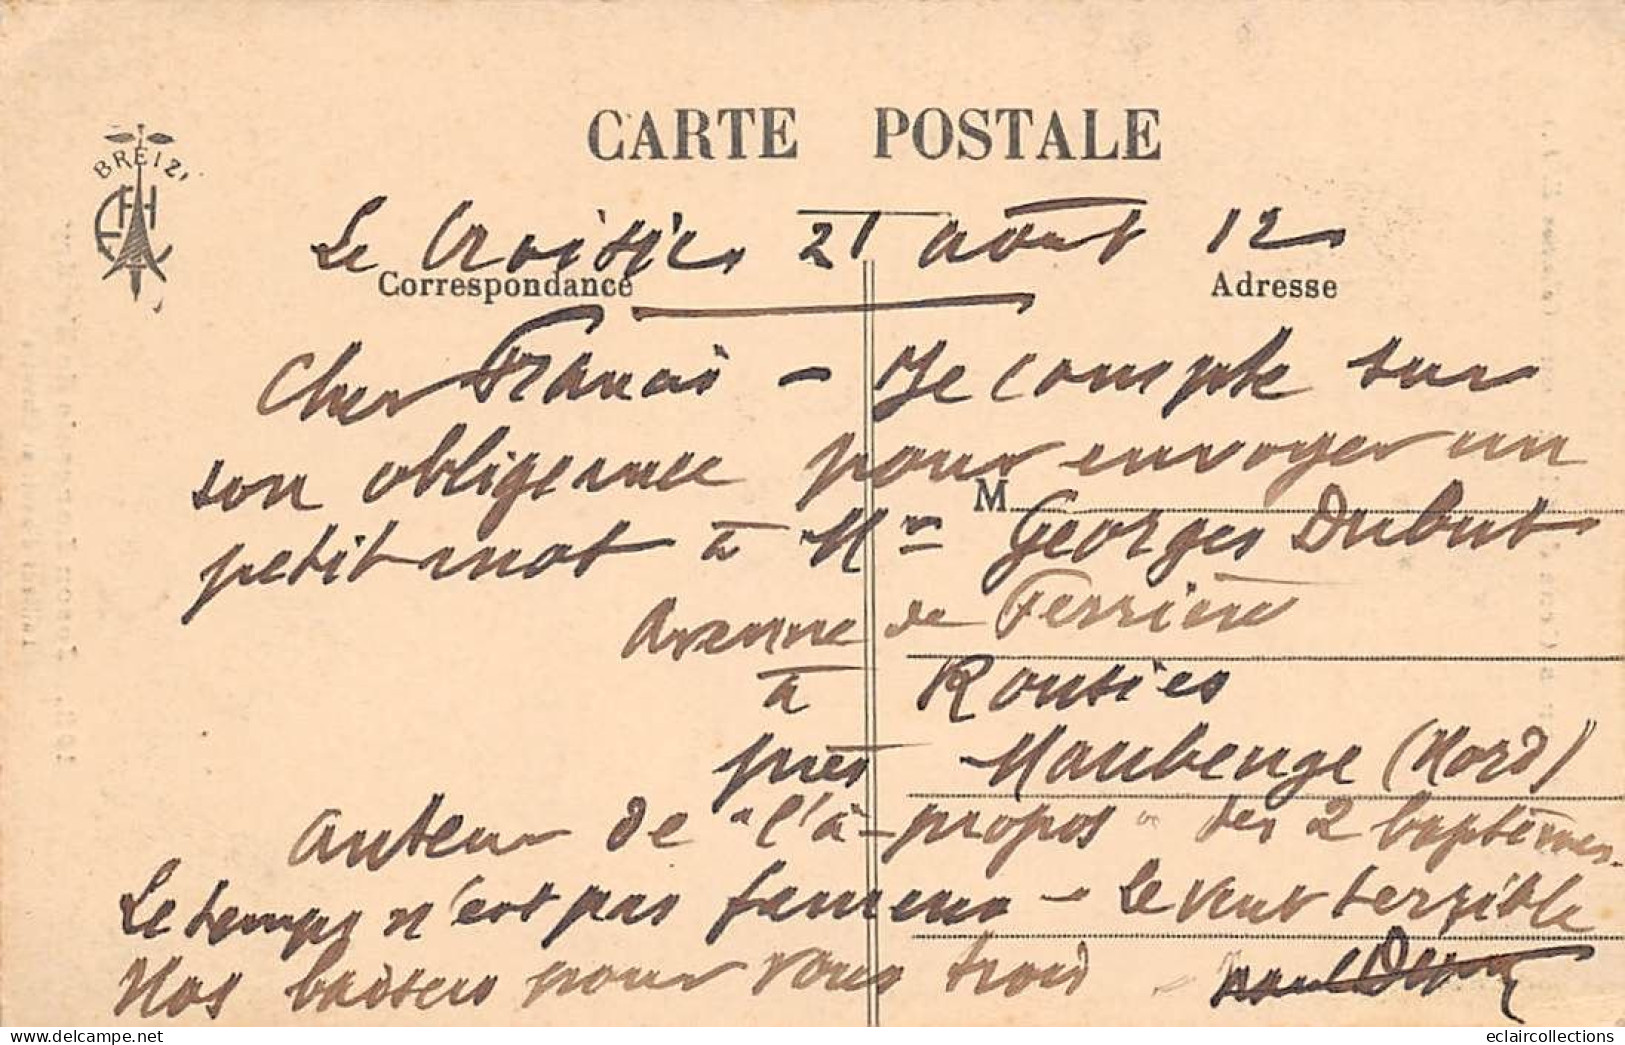 CARTE POSTALE
BREIZ
Le Croisic 21 août 12
Correspondance
Adresse
Cher Francis – Je compte sur
son obligeance pour envoyer un
M
petit mot à Mr Georges Dubut
Avenue de Ferrière
à Rousies
près Maubeuge (Nord)
auteur de "l'à-propos" des 2 baptêmes.
Le temps n'est pas fameux – Le vent terrible
Nos baisers pour vous trois
eclaircollections